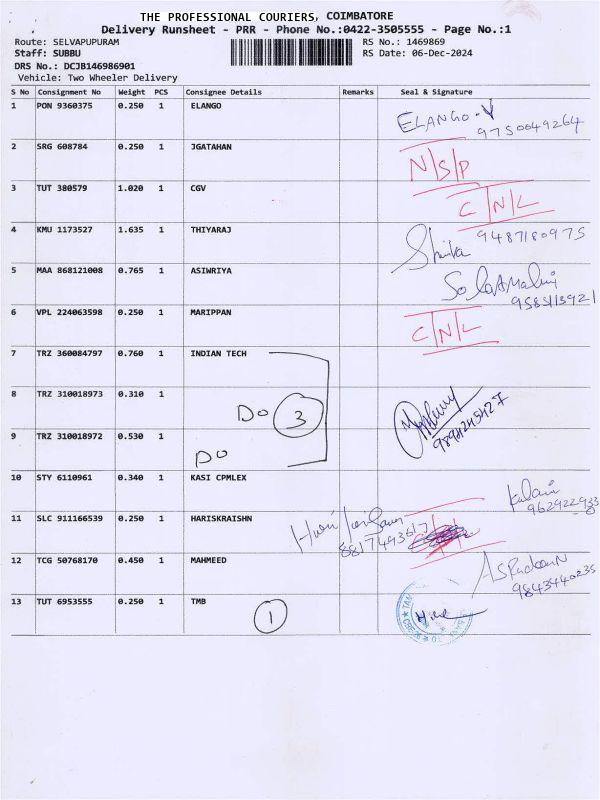 THE PROFESSIONAL COURIERS, COIMBATORE
Delivery Runsheet - PRR - Phone No.:0422-3505555 - Page No.:1
Route: SELVAPUPURAM RS No.: 1469869
Staff: SUBBU RS Date: 06-Dec-2024
DRS No.: DCJB146986901
Vehicle: Two Wheeler Delivery
S No Consignment No Weight PCS Consignee Details Remarks Seal & Signature
1 PON 9360375 0.250 1 ELANGO ELANGO.V
9750049264
2 SRG 608784 0.250 1 JGATAHAN N/S/P
3 TUT 380579 1.020 1 CGV C/N/L
4 KMU 1173527 1.635 1 THIYARAJ 9487180975
5 MAA 868121008 0.765 1 ASIWRIYA
6 VPL 224063598 0.250 1 MARIPPAN C/N/L
7 TRZ 360084797 0.760 1 INDIAN TECH
8 TRZ 310018973 0.310 1 Do 3
9 TRZ 310018972 0.530 1 Do
10 STY 6110961 0.340 1 KASI CPMLEX
962922933
11 SLC 911166539 0.250 1 HARISKRAISHN
12 TCG 50768170 0.450 1 MAHMEED
9843440235
13 TUT 6953555 0.250 1 TMB 1